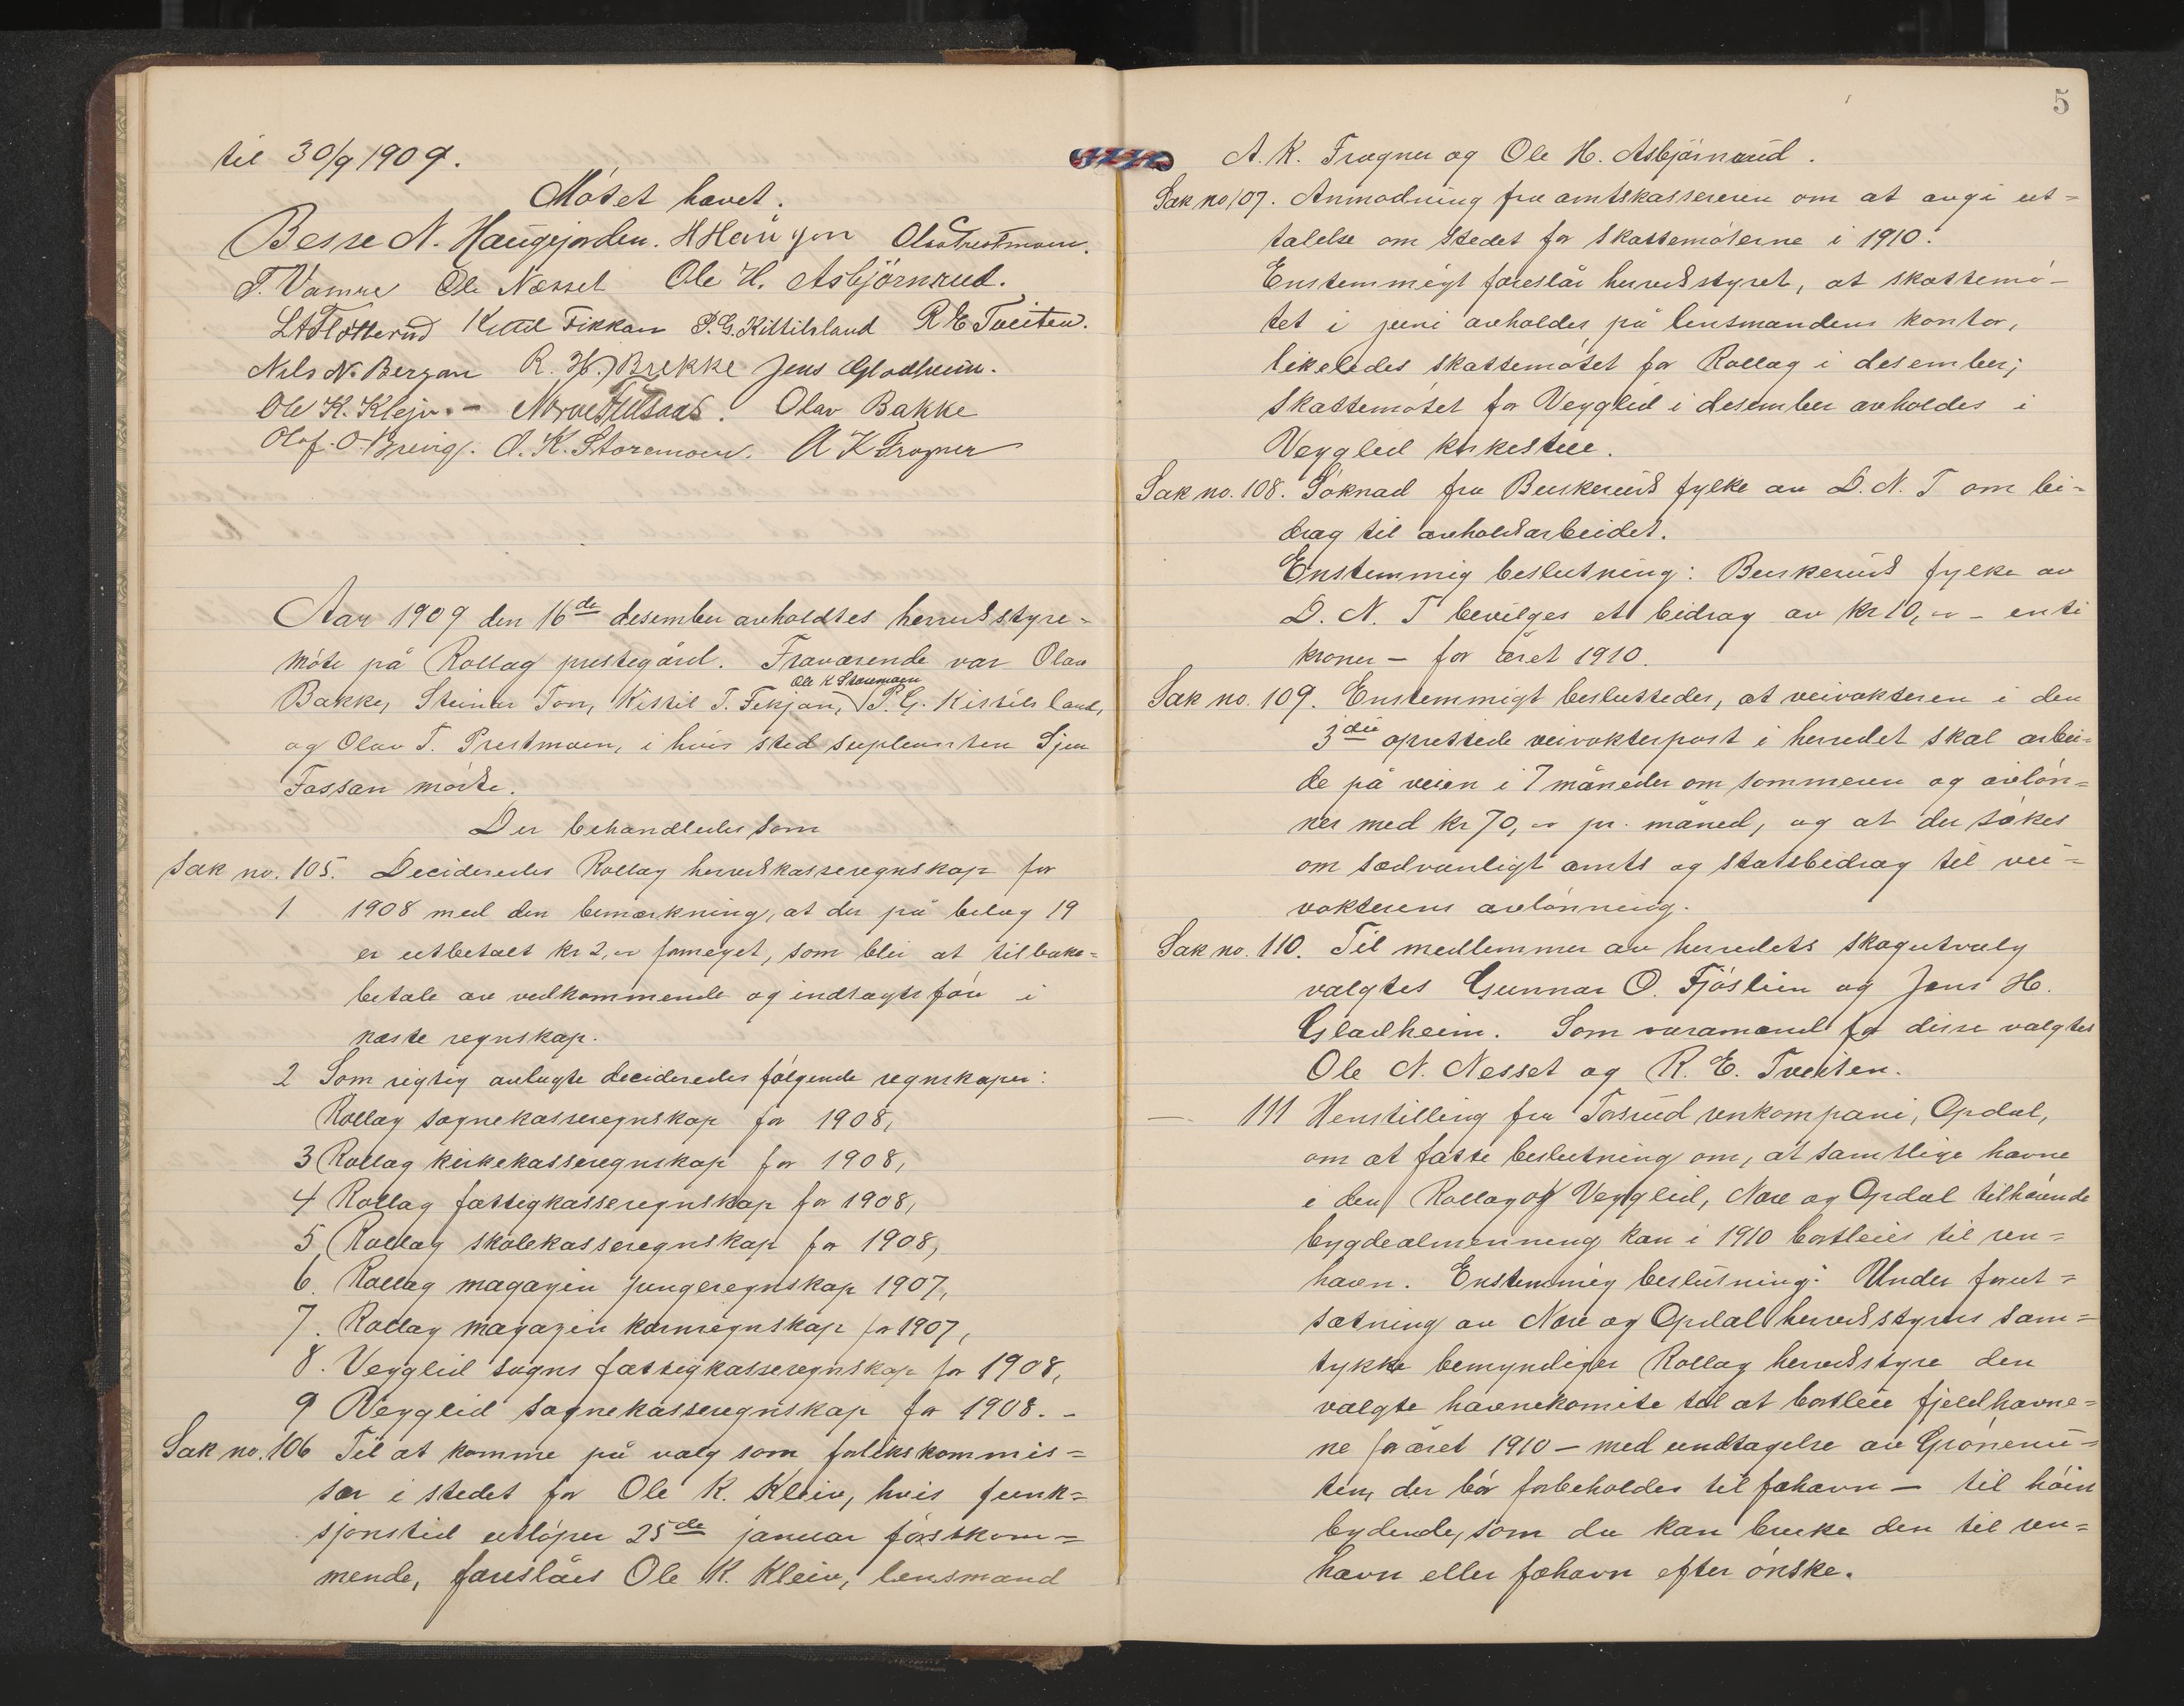 til 30/9 1909.
Møtet hævet.
Besse N. Haugejorden. Olav Prestmoen.
T. Vamre Ole Næsset Ole H. Asbjørnrud.
Kittil Fikkan P. G. Kittilsland R E Tveiten.
Nils N. Bergan R. H. Brekke Jens Gladheim.
Ole K. Klejv. - Olav Bakke
Olof. O. Bráig. O. K. Storemoen. A K Frogner
Aar 1909 den 16de desember avholdtes herredsstyre-
møte på Rollag prestegård. Fraværende var Olav
Ole K Storemoen
Bakke, Steinar Ton, Kittil T. Fikjan, P. G. Kittilsland,
og Olav T. Prestmoen, i hvis sted suplanten Sjen
Fossan møtte.
Der behandledes som
Sak no. 105. Decideredes Rollag herredskasseregnskap for
1 1908 med den bemerkning, at der på belag 19
er utbetalt kr 2,00 formeget, som blir at tilbake-
betale av vedkommende og indtægtsføre i
næste regnskap.
2 Som rigtig avlagte decideredes følgende regnskaper:
Rollag sognekasseregnskap for 1908,
3 Rollag kirkekasseregnskap for 1908,
4 Rollag fattigkasseregnskap for 1908,
5, Rollag skolekasseregnskap for 1908,
6. Rollag magazin pengeregnskap 1907,
7. Rollag magazin kornregnskap for 1907,
8. Vegglid sogns fattigkasseregnskap for 1908,
9 Vegglid sognekasseregnskap for 1908. -
Sak no. 106 Til at komme på valg som forlikskommis=
sær i stedet for Ole K. Kleiv, hvis funk=
sjonstid utløper 25de januar førstkom=
mende, foreslåes Ole K. Kleiv, lensmand
5
A. K. Frogner og Ole H. Asbjørnrud.
Sak no 107. Anmodning fra amtskassereren om at avgi ut=
talelse om stedet for skattemøterne i 1910.
Enstemmigt foreslår herredsstyret, at skattemø-
tet i juni avholdes på lensmandens kontor,
likeledes skattemøtet for Rollag i desember;
skattemøtet for Vegglid i desember avholdes i
Vegglid kirkestue.
Sak no. 108. Søknad fra Buskeruds fylke av D. N. T om bi-
drag til avholdsarbeidet.
Enstemmig beslutning: Buskeruds fylke av
D. N. T bevilges et bidrag av kr 10,00 - en ti
kroner - for året 1910.
Sak no. 109. Enstemmigt besluttedes, at veivokteren i den
3die oprettede veivokterpost i herredet skal arbei=
de på veien i 7 måneder om sommeren og avløn=
nes med kr 70,00 pr. måned, og at der søkes
om sedvanligt amts og statsbidrag til vei=
vokterens avlønning.
Sak no. 110. Til medlemmer av herredets skogutvalg
valgtes Gunnar O. Fjøslien og Jens H.
Gladheim. Som varamænd for disse valgtes
Ole N. Nesset og R. E. Tveiten.
— 111 Henstilling fra Torsrud renkompani, Opdal,
om at fatte beslutning om, at samtlige havne
i den Rollag og Vegglid, Nore og Opdal tilhørende
bygdealmenning kan i 1910 bortleies til ren=
havn. Enstemmig beslutning: Under forut=
sætning av Nore og Opdal herredsstyres sam=
tykke bemyndiger Rollag herredsstyre den
valgte havnekomite til at bortleie fjeldhavne=
ne for året 1910 - med undtagelse av Grønenu=
ten, der bør forbeholdes til fæhavn - til høist
bydende, som da kan bruke den til ren=
havn eller fæhavn efter ønske.